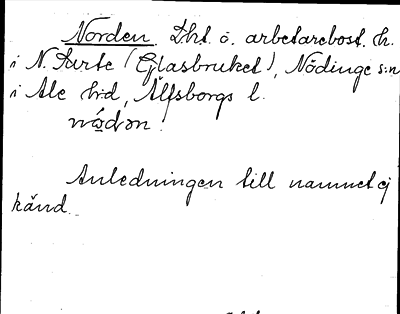 Norden. Lht o. arbetarebost. h.
i N. Surte (Glasbruket), Nödinge s:n
i Ale h:d, Älfsborgs l.
nω̄́dən.
Anledningen till namnet ej
känd.